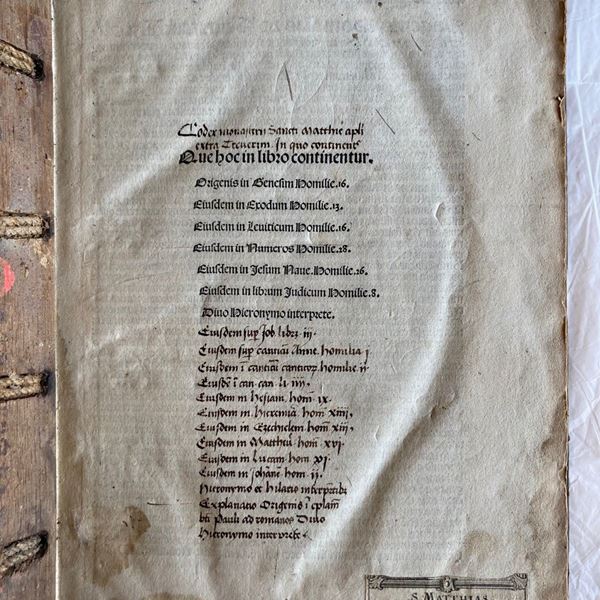 Codex monasterii Sancti Matthie apli
extra Treverim. In quo continent
Que hoc in libro continentur.
Origenis in Genesim Homilie .16.
Eiusdem in Exodum Homilie .13.
Eiusdem in Leuiticum Homilie .16.
Eiusdem in Numeros Homilie .28.
Eiusdem in Jesum Naue. Homilie .26.
Eiusdem in librum Judicum Homilie .8.
Diuo Hieronymo interprete.
Eiusdem sup Job libri iii.
Eiusdem sup canticū Anne. homilia i
Eiusdem ī canticū canticorꝝ. homilie ii
Eiusdē ī can. can. li. iiii.
Eiusdem in Hesiam. hom̄. ix.
Eiusdem in Hieremiā. hom̄ xiiii.
Eiusdem in Ezechielem. hom̄ xiiii.
Eiusdem in Mattheū. hom̄. xvi.
Eiusdem in Lucam hom. xi.
Eiusdem in Johānē hom. ii.
Hieronymo et Hilario
Explanatio Origenis ī eplam
bti Pauli ad romanos Diuo
Hieronymo interprete.
S. MATTHIAS